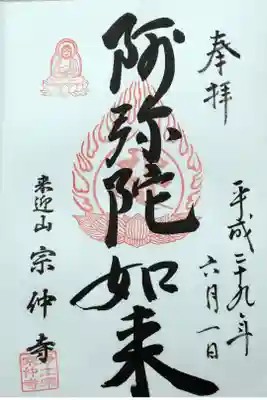 奉拝
平成二十九年
六月一日
阿弥陀如来
来迎山
宗仲寺